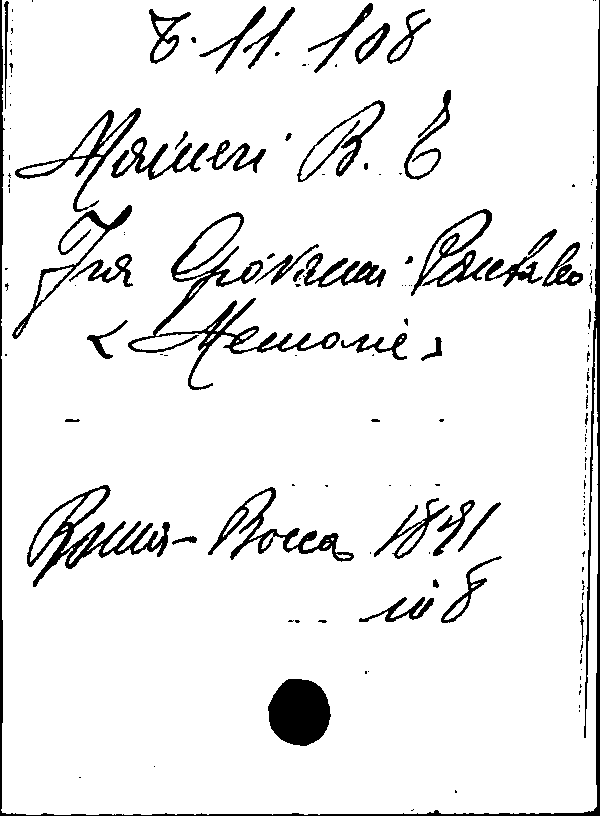 T. 11. 108
Maineri B. E
Fra Giovanni Pantaleo
< Memorie >
Roma - Bocca 1891
in 8